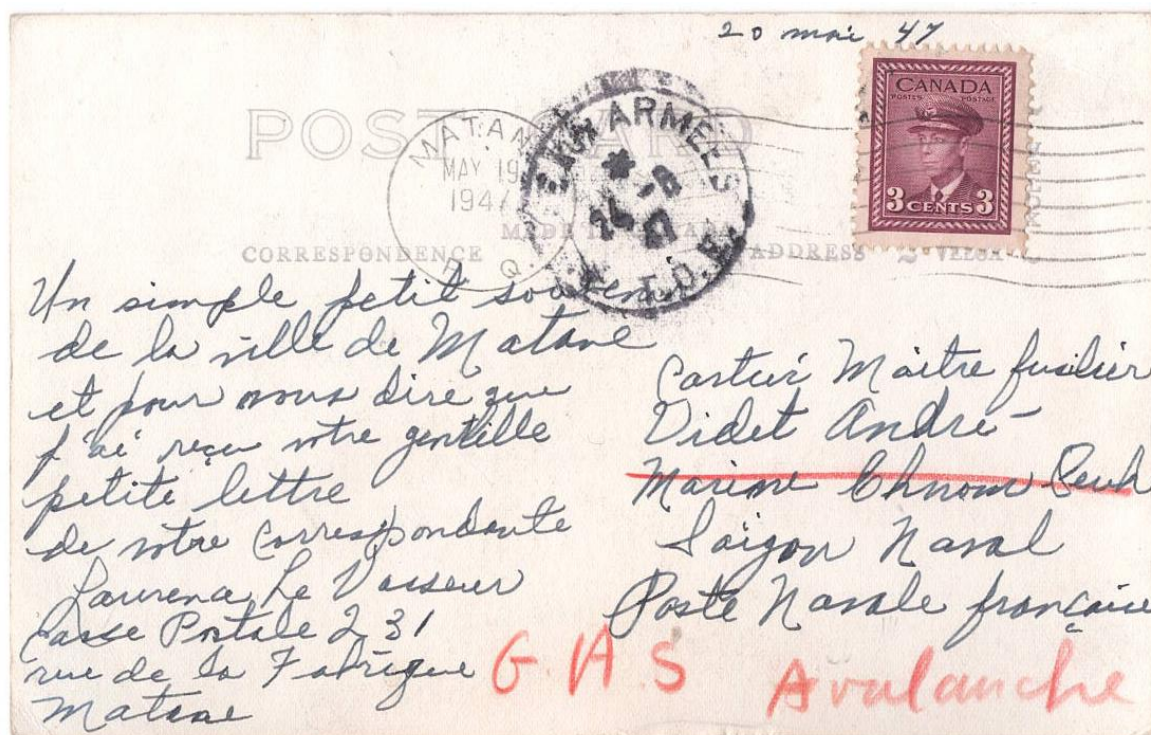 20 mai 47
POST CARD
CANADA
POSTES POSTAGE
3 CENTS 3
MATAN
MAY 19
194
P. Q.
ARMEES
T.O.E.
MADE IN CANADA
CORRESPONDENCE
ADDRESS
Un simple petit souvenir
de la ville de Matane
et pour vous dire que
j'ai reçu votre gentille
petite lettre
de votre Correspondante
Laurena Le Vasseur
Casse Postale 231
rue de la Fabrique
Matane
Maitre fusilier
Videt André
Marine Chnom Penh
Saïgon Naval
Poste Navale française
G.A.S Avalanche